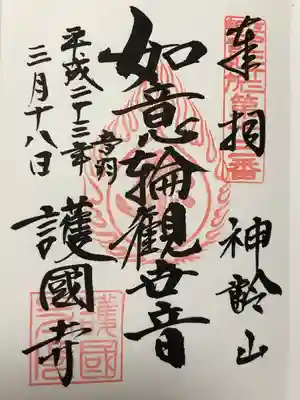 奉拝
神齢山
如意輪觀世音
平成二十三年
三月十八日
護國寺
護國